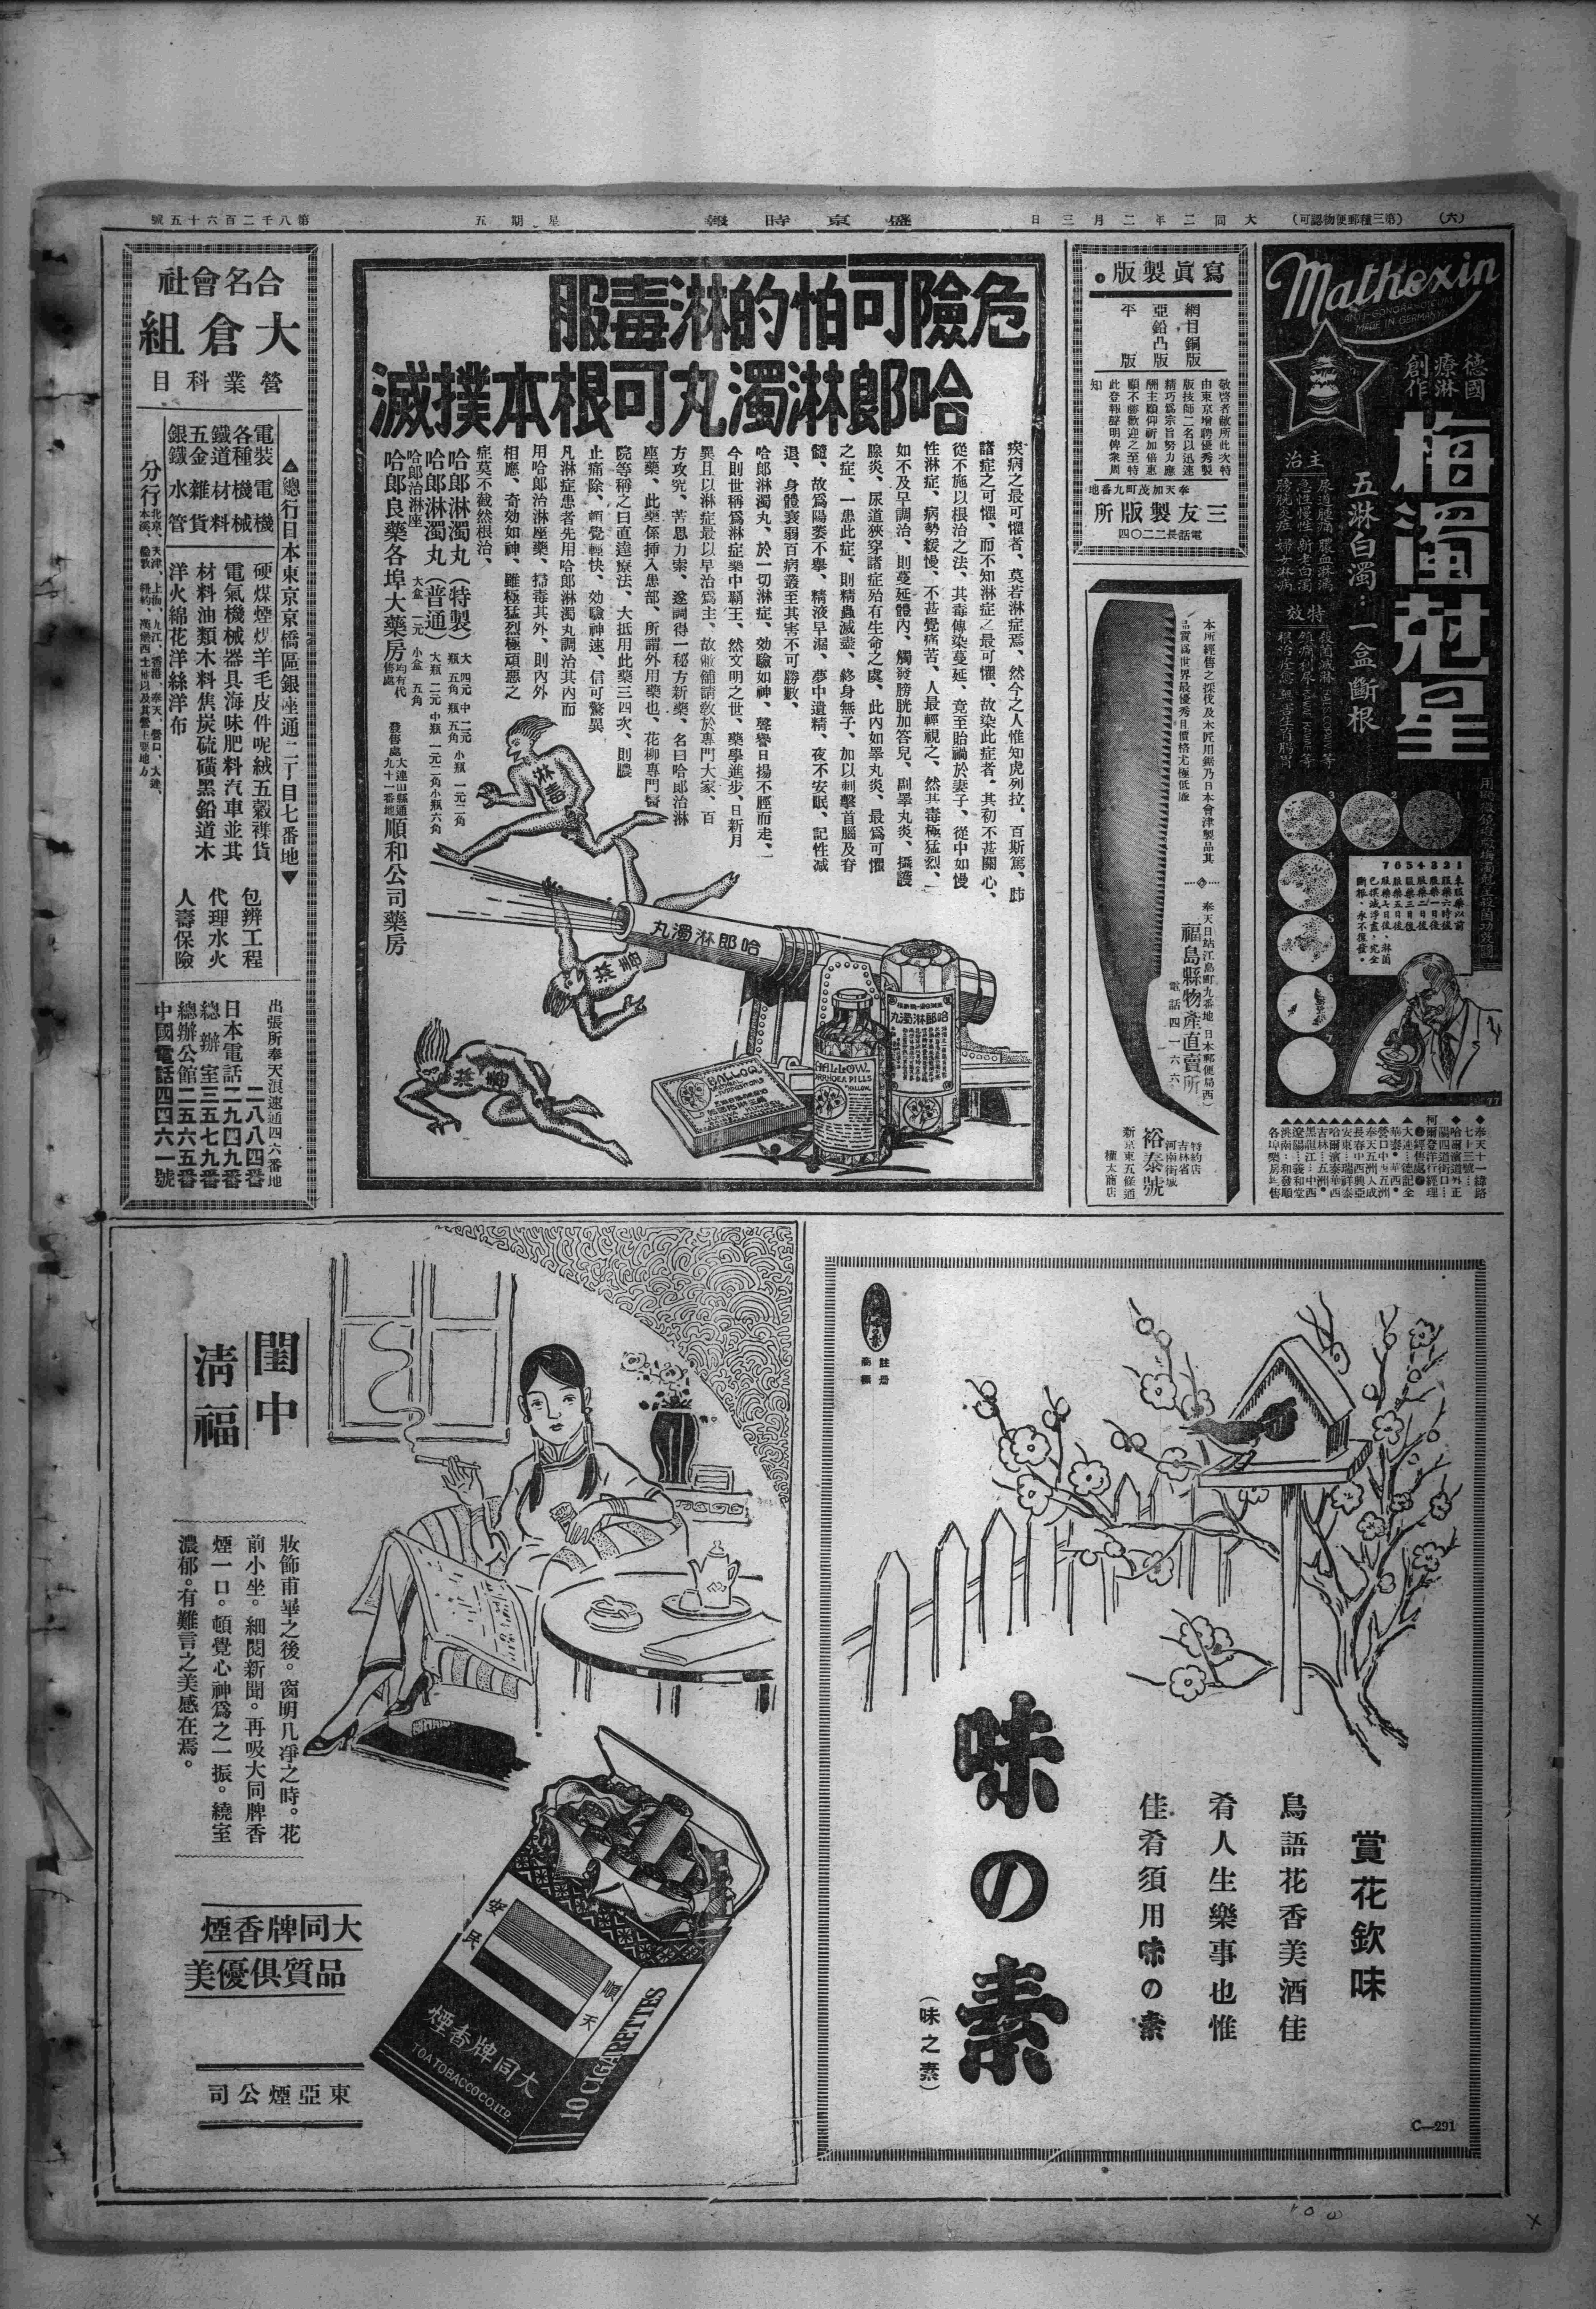 (六)
(第三種郵便物認可)
大同二年二月三日
盛京時報
星期五
第八千二百六十五號
Mathexin
MADE IN GERMANY
德國
療淋
創作
梅濁剋星
五淋白濁：一盒斷根
主治
特效
1 未服藥以前
2 服藥六時後
3 服藥一日後
4 服藥二日後
5 服藥三日後
6 服藥五日後
寫真製版
網目銅版
亞鉛凸版
平版
敬啓者敝所此次特
由東京增聘優秀製
版技師二名以迅速
精巧爲宗旨努力應
酬主顧仰祈加倍惠
顧不勝歡迎之至特
此登報聲明俾衆周
知
奉天加茂町九番地
三友製版所
電話長二二〇四
本所經售之採伐及木匠用鋸乃日本會津製品其
品質爲世界最優秀且價格尤極低廉
奉天日站江島町九番地(日本郵便局西)
福島縣物產直賣所
電話四一六六
特約店
吉林省
河南街城
裕泰號
新京東五條通
權太商店
危險可怕的淋毒服
哈郎淋濁丸可根本撲滅
疾病之最可懼者、莫若淋症焉、然今之人惟知虎列拉、百斯篤、肺
諸症之可懼、而不知淋症之最可懼、故染此症者、其初不甚關心、
從不施以根治之法、其毒傳染蔓延、竟至貽禍於妻子、從中如慢
性淋症、病勢緩慢、不甚覺痛苦、人最輕視之、然其毒極猛烈、一
如不及早調治、則蔓延體內、觸發膀胱加答兒、副睪丸炎、攝護
腺炎、尿道狹穿諸症殆有生命之處、此內如睪丸炎、最爲可懼
之症、一患此症、則精蟲滅盡、終身無子、加以刺擊首腦及脊
髓、故爲陽萎不舉、精液早漏、夢中遺精、夜不安眠、記性减
退、身體衰弱百病叢至其害不可勝數、
哈郎淋濁丸、於一切淋症、効驗如神、聲譽日揚不脛而走、一
今則世稱爲淋症藥中覇王、然文明之世、藥學進步、日新月
異且以淋症最以早治爲主、故敝舖請教於專門大家、百
方攻究、苦思力索、遂調得一秘方新藥、名曰哈郎治淋
座藥、此藥係挿入患部、所謂外用藥也、花柳專門醫
院等稱之曰直達療法、大抵用此藥三四次、則膿
止痛除、頓覺輕快、効驗神速、信可驚異
凡淋症患者先用哈郎淋濁丸調治其內而
用哈郎治淋座藥、掃毒其外、則內外
相應、奇効如神、雖極猛烈極頑惡之
症莫不截然根治、
哈郎淋濁丸(特製)大瓶四元五角 中瓶二元五角 小瓶一元二角
哈郎淋濁丸(普通)大瓶二元 中瓶一元二角 小瓶六角
哈郎治淋座 大盒一元 小盒五角
哈郎良藥各埠大藥房均有代售處
發售處大連山縣通九十一番地順和公司藥房
淋毒
哈郎淋濁丸
哈郎淋濁丸
HALLOW
合名會社
大倉組
營業科目
電裝電機
各種機械
鐵道材料
五金雜貨
銀鐵水管
硬煤煙煤羊毛皮件呢絨五穀襍貨
電氣機械器具海味肥料汽車並其
材料油類木料焦炭硫磺黑鉛道木
洋火綿花洋絲洋布
包辨工程
代理水火
人壽保險
▲總行日本東京京橋區銀座通二丁目七番地▼
出張所奉天浪速通四六番地
二八八四番
日本電話二九四九番
總辦室三五七九番
總辦公館二五六五番
中國電話四四六一號
註册
商標
賞花飲味
鳥語花香美酒佳
肴人生樂事也惟
佳肴須用味の素
味の素
(味之素)
C—291
閨中
清福
妝飾甫畢之後。窗明几凈之時。花
前小坐。細閱新聞。再吸大同牌香
煙一口。頓覺心神爲之一振。繞室
濃郁。有難言之美感在焉。
大同牌香煙
品質俱優美
東亞煙公司
順天
安民
大同牌香煙
TOA TOBACCO CO. LTD.
10 CIGARETTES